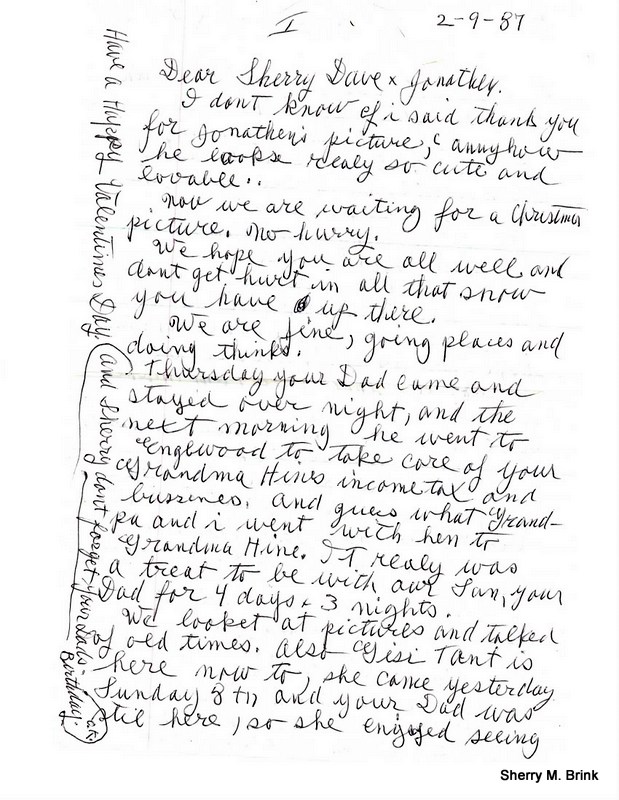 I
2-9-87
Dear Sherry Dave & Jonathen.
I dont know if i said thank you
for Jonathen's picture, annyhow
he looks realy so cute and
lovable..
Now we are waiting for a Christmas
picture. No hurry.
We hope you are all well and
dont get hurt in all that snow
you have up there.
We are fine, going places and
doing thinks.
Thursday your Dad came and
stayed over night, and the
next morning he went to
Englewood to take care of your
Grandma Hines incometax and
bussines. And guess what Grand-
pa and i went with hen to
Grandma Hine. IT realy was
a treat to be with our Son, your
Dad for 4 days & 3 nights.
We looket at pictures and talked
of old times. Also Gisi Tant is
here now to, she came yesterday
Sunday 8th and your Dad was
stil here, so she enjoyed seeing
Have a Happy Valentines Day.
(and Sherry dont forget your Dads
Birthday.
Sherry M. Brink